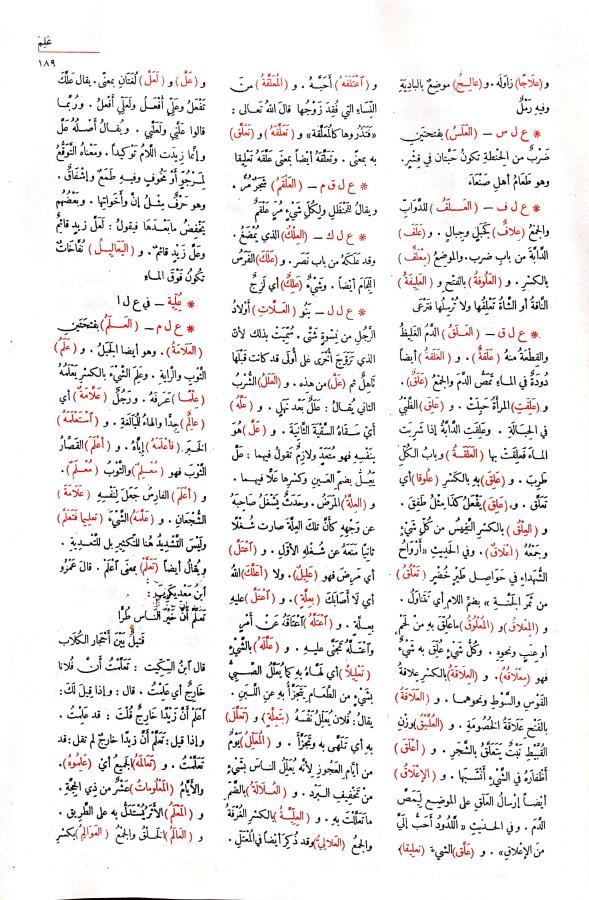 عَلِمَ
١٨٩
و (عِلَاجًا) زاوَلَه. و(عالِجٌ) موضِعٌ بالبادِيَةِ
وفيه رَمْلٌ
* ع ل س – (العَلَسُ) بفتحتين
ضَرْبٌ من الحِنْطةِ تكونُ حَبَّتان في قِشْرٍ.
وهو طَعامُ أهلِ صَنْعَاءَ
* ع ل ف – (العَلَفُ) للدَّوابِّ
والجمعُ (عِلافٌ) كَجَبَلٍ وجِبالٍ. و (عَلَفَ)
الدَّابَّةَ من بابِ ضرب. والموضِعُ (مِعْلَفٌ)
بالكسْرِ. و (العَلُوفةُ) بالفتح و (العَلِيفةُ)
الناقةُ أو الشَّاةُ تَعْلِفُها ولا تُرْسِلُها فتَرْعَى
* ع ل ق – (العَلَقُ) الدمُ الغَليظُ
والقِطعةُ منهُ (عَلَقةٌ). و (العَلَقةُ) أيضاً
دُودَةٌ في الماءِ تَمُصُّ الدَّمَ والجمعُ (عَلَقٌ).
و (عَلِقَتِ) المرأةُ حَبِلَتْ. و (عَلِقَ) الظَّبْيُ
في الحِبالَةِ. وعَلِقَتِ الدَّابَّةُ إذا شَرِبَتِ
الماءَ فعَلِقَتْ بها (العَلَقةُ) وبابُ الكُلِّ
طَرِبَ. و (عَلِقَ) به بالكسْرِ (عُلُوقا) أي
تَعَلَّقَ. و(عَلِقَ) يَفْعَلُ كذا مثلُ طَفِقَ.
و (العِلْقُ) بالكسْرِ النَّفِيسُ من كُلِّ شيءٍ
وجَمْعُهُ (أعْلاقٌ). وفي الحديثِ «أَرْوَاحُ
الشُّهداءِ في حَواصِلِ طَيْرٍ خُضْرٍ (تَعْلُقُ)
من ثَمَرِ الجَنَّةِ» بضم اللام أي تَتَناوَلُ.
و (المِعْلاقُ) و (المُعْلُوقُ) ماعُلِّقَ به من لَحْمٍ
أو عِنَبٍ ونحوِهِ. وكُلُّ شيءٍ عُلِّقَ به شَيءٌ
فهو (مِعْلاقُهُ). و (العِلاقَةُ) بالكسْرِ عِلاقةُ
القَوْسِ والسَّوْطِ ونحوِهما. و (العَلَاقَةُ)
بالفتح عَلَاقَةُ الخُصُومَةِ. و (العُلَّيْقُ) وزْنُ
القُبَّيْطِ نَبْتٌ يَتَعَلَّقُ بالشَّجَرِ. و (أَعْلَقَ)
أظفارَهُ في الشَّيءِ أَنْشَبَها. و (الإعْلاقُ)
أيضاً إرْسالُ العَلَقِ على الموضِعِ لِيَمُصَّ
الدَّمَ. وفي الحديثِ «اللَّدُودُ أَحَبُّ إلَيَّ
من الإعْلاقِ». و (عَلَّقَ) الشيءَ (تعليقا)
و (اعْتَلَقَهُ) أحَبَّهُ. و (المُعَلَّقَةُ) مِنَ
النِّساءِ التي فُقِدَ زَوْجُها قال اللهُ تعالى:
«فَتَذَرُوها كالمُعَلَّقةِ» و (تَعَلَّقَهُ) و (تعَلَّقَ)
به بمعنًى. وتَعَلَّقَهُ أيضاً بمعنَى عَلَّقَهُ تَعْلِيقا
* ع ل ق م – (العَلْقَمُ) شَجَرٌ مُرٌّ.
ويقالُ للحَنْظَلِ ولِكُلِّ شيءٍ مُرٍّ عَلْقَمٌ
* ع ل ك – (العِلْكُ) الذي يُمْضَغُ.
وقد عَلَكَهُ من باب نَصَر. و (عَلَكَ) الفَرَسُ
اللِّجامَ أيضاً. وشيءٌ (عَلِكٌ) أي لَزِجٌ
* ع ل ل – بَنُو (العَلَّاتِ) أوْلادُ
الرَّجُلِ من نِسوَةٍ شَتَّى. سُمِّيَتْ بذلك لأنَّ
الذي تزوَّجَ أُخْرَى على أُولَى قد كانت قَبْلَها
ناهِلٌ ثم (عَلَّ) من هذه. و (العَلَلُ) الشُّرْبُ
الثاني يُقالُ: عَلَلٌ بعدَ نَهَلٍ. و (عَلَّهُ)
أي سَقاهُ السَّقْيةَ الثَّانِيةَ. و (عَلَّ) هو
بنَفْسِهِ فهو مُتَعَدٍّ ولازِمٌ تقولُ فيهما: عَلَّ
يَعُلُّ بضم العين وكسْرِها عَلًّا فيهما.
و (العِلَّةُ) المرَضُ. وحَدَثٌ يَشْغَلُ صاحِبَهُ
عن وَجْهِهِ كأنَّ تلك العِلَّةَ صارت شُغْلًا
ثانيًا مَنَعَهُ عن شُغْلِهِ الأوَّلِ. و (اعْتَلَّ)
أي مَرِضَ فهو (عَلِيلٌ). ولا (أعَلَّكَ) اللهُ
أي لا أصَابَكَ (بِعِلَّةٍ). و (اعْتَلَّ) عليه
بِعِلَّةٍ. و (اعْتَلَّهُ) اعْتاقَهُ عن أمْرٍ
واعْتَلَّهُ تَجَنَّى عليه. و (عَلَّلَهُ) بالشَّيءِ
(تَعْلِيلًا) أي لَهَّاهُ به كما يُعَلَّلُ الصَّبِيُّ
بشَيْءٍ من الطَّعامِ يَتَجَزَّأُ به عن اللَّبَنِ.
يقالُ: فُلانٌ يُعَلِّلُ نَفْسَهُ (بتَعِلَّةٍ) و (تَعَلَّلَ)
به أي تَلَهَّى به وتَجَزَّأَ. و (المُعَلِّلُ) يومٌ
من أيَّامِ العَجُوزِ لِأنَّه يُعَلِّلُ الناسَ بشيءٍ
من تَخْفيفِ البَرْد. و (العُلَالَةُ) بالضَّمِّ
ما تَعَلَّلْتَ به. و (العِلِّيَّةُ) بالكسْرِ الغُرْفَةُ
والجمعُ (العَلالِيُّ) وقد ذُكِرَ أيضاً في المُعْتَلِّ.
و (عَلَّ) و (لَعَلَّ) لُغَتانِ بمعنًى. يقال عَلَّكَ
تَفْعَلُ وعَلِّي أفْعَلُ ولَعَلِّي أفْعَلُ. ورُبَّما
قالوا عَلَّنِي ولَعَلَّنِي. ويُقالُ أصلُهُ عَلَّ
وإنَّما زِيدَتِ اللامُ تَوكيدًا. ومعناهُ التَّوَقُّعُ
لِمَرْجُوٍّ أوْ مَخُوفٍ وفيهِ طَمَعٌ وإشفاقٌ.
وهو حَرْفٌ مِثلُ إنَّ وأخَوَاتِها. وبَعْضُهُم
يَخْفِضُ مابَعْدَها فيقولُ: لَعَلَّ زيدٍ قائمٌ
وعَلَّ زَيدٍ قائمٌ. و (اليَعَالِيلُ) نُفَّاخاتٌ
تكُونُ فَوْقَ الماءِ
* عِلِّيَّة – في ع ل ا
* ع ل م – (العَلَمُ) بفتحتين
(العَلَامَةُ). وهو أيضا الجَبَلُ. و (عَلَمُ)
الثوبِ والرَّايةِ. وعَلِمَ الشيءَ بالكسْرِ يَعْلَمُهُ
(عِلْما) عَرَفَهُ. ورجُلٌ (عَلَّامةٌ) أي
(عَالِمٌ) جِدًّا والهاءُ للمُبالَغَةِ. و (اسْتَعْلَمَهُ)
الخَبرَ (فأعْلَمَهُ) إيَّاهُ. و (أعْلَمَ) القَصَّارُ
الثَّوبَ فهو (مُعْلِمٌ) والثوبُ (مُعْلَمٌ).
و (أعْلَمَ) الفارِسُ جَعَلَ لِنَفْسِهِ (عَلامَةَ)
الشُّجْعانِ. و (عَلَّمَهُ) الشَّيءَ (تعليما فتَعَلَّمَ)
وليسَ التَّشْديدُ هُنا للتَّكثيرِ بل للتَّعْديةِ.
ويُقالُ أيضاً (تَعَلَّمْ) بمعنى اعْلَمْ. قال عَمْرُو
ابنُ مَعْدِيكَرِبَ:
تَعَلَّمْ أنَّ خَيْرَ النَّاسِ طُرًّا
قَتِيلٌ بَيْنَ أحْجَارِ الكُلَابِ
قال ابنُ السِّكِّيتِ: تَعَلَّمْتُ أنَّ فُلانا
خارِجٌ أي عَلِمْتُ. قال: وإذا قِيلَ لكَ:
اعْلَمْ أنَّ زَيْدًا خارِجٌ قُلْتَ: قد عَلِمْتُ.
وإذا قيل: تَعَلَّمْ أنَّ زيدًا خارجٌ لم تَقُل: قد
تَعَلَّمْتُ. و (تَعَالَمَهُ) الجميعُ أي (عَلِمُوهُ).
والأيَّامُ (المَعْلُومَاتُ) عَشْرٌ من ذي الحِجَّةِ.
و (المَعْلَمُ) الأثَرُ يُسْتَدَلُّ به على الطَّرِيقِ.
و (العالَمُ) الخَلْقُ والجمعُ (العَوالِمُ) بكسْرِ